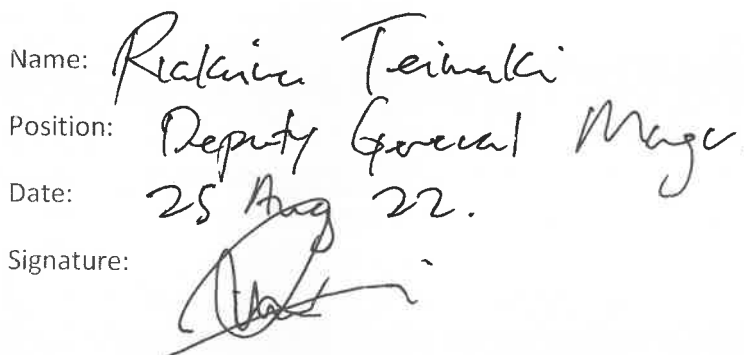 Name: Riakaina Teimaki
Position: Deputy General Mager
Date: 25 Aug 22.
Signature: